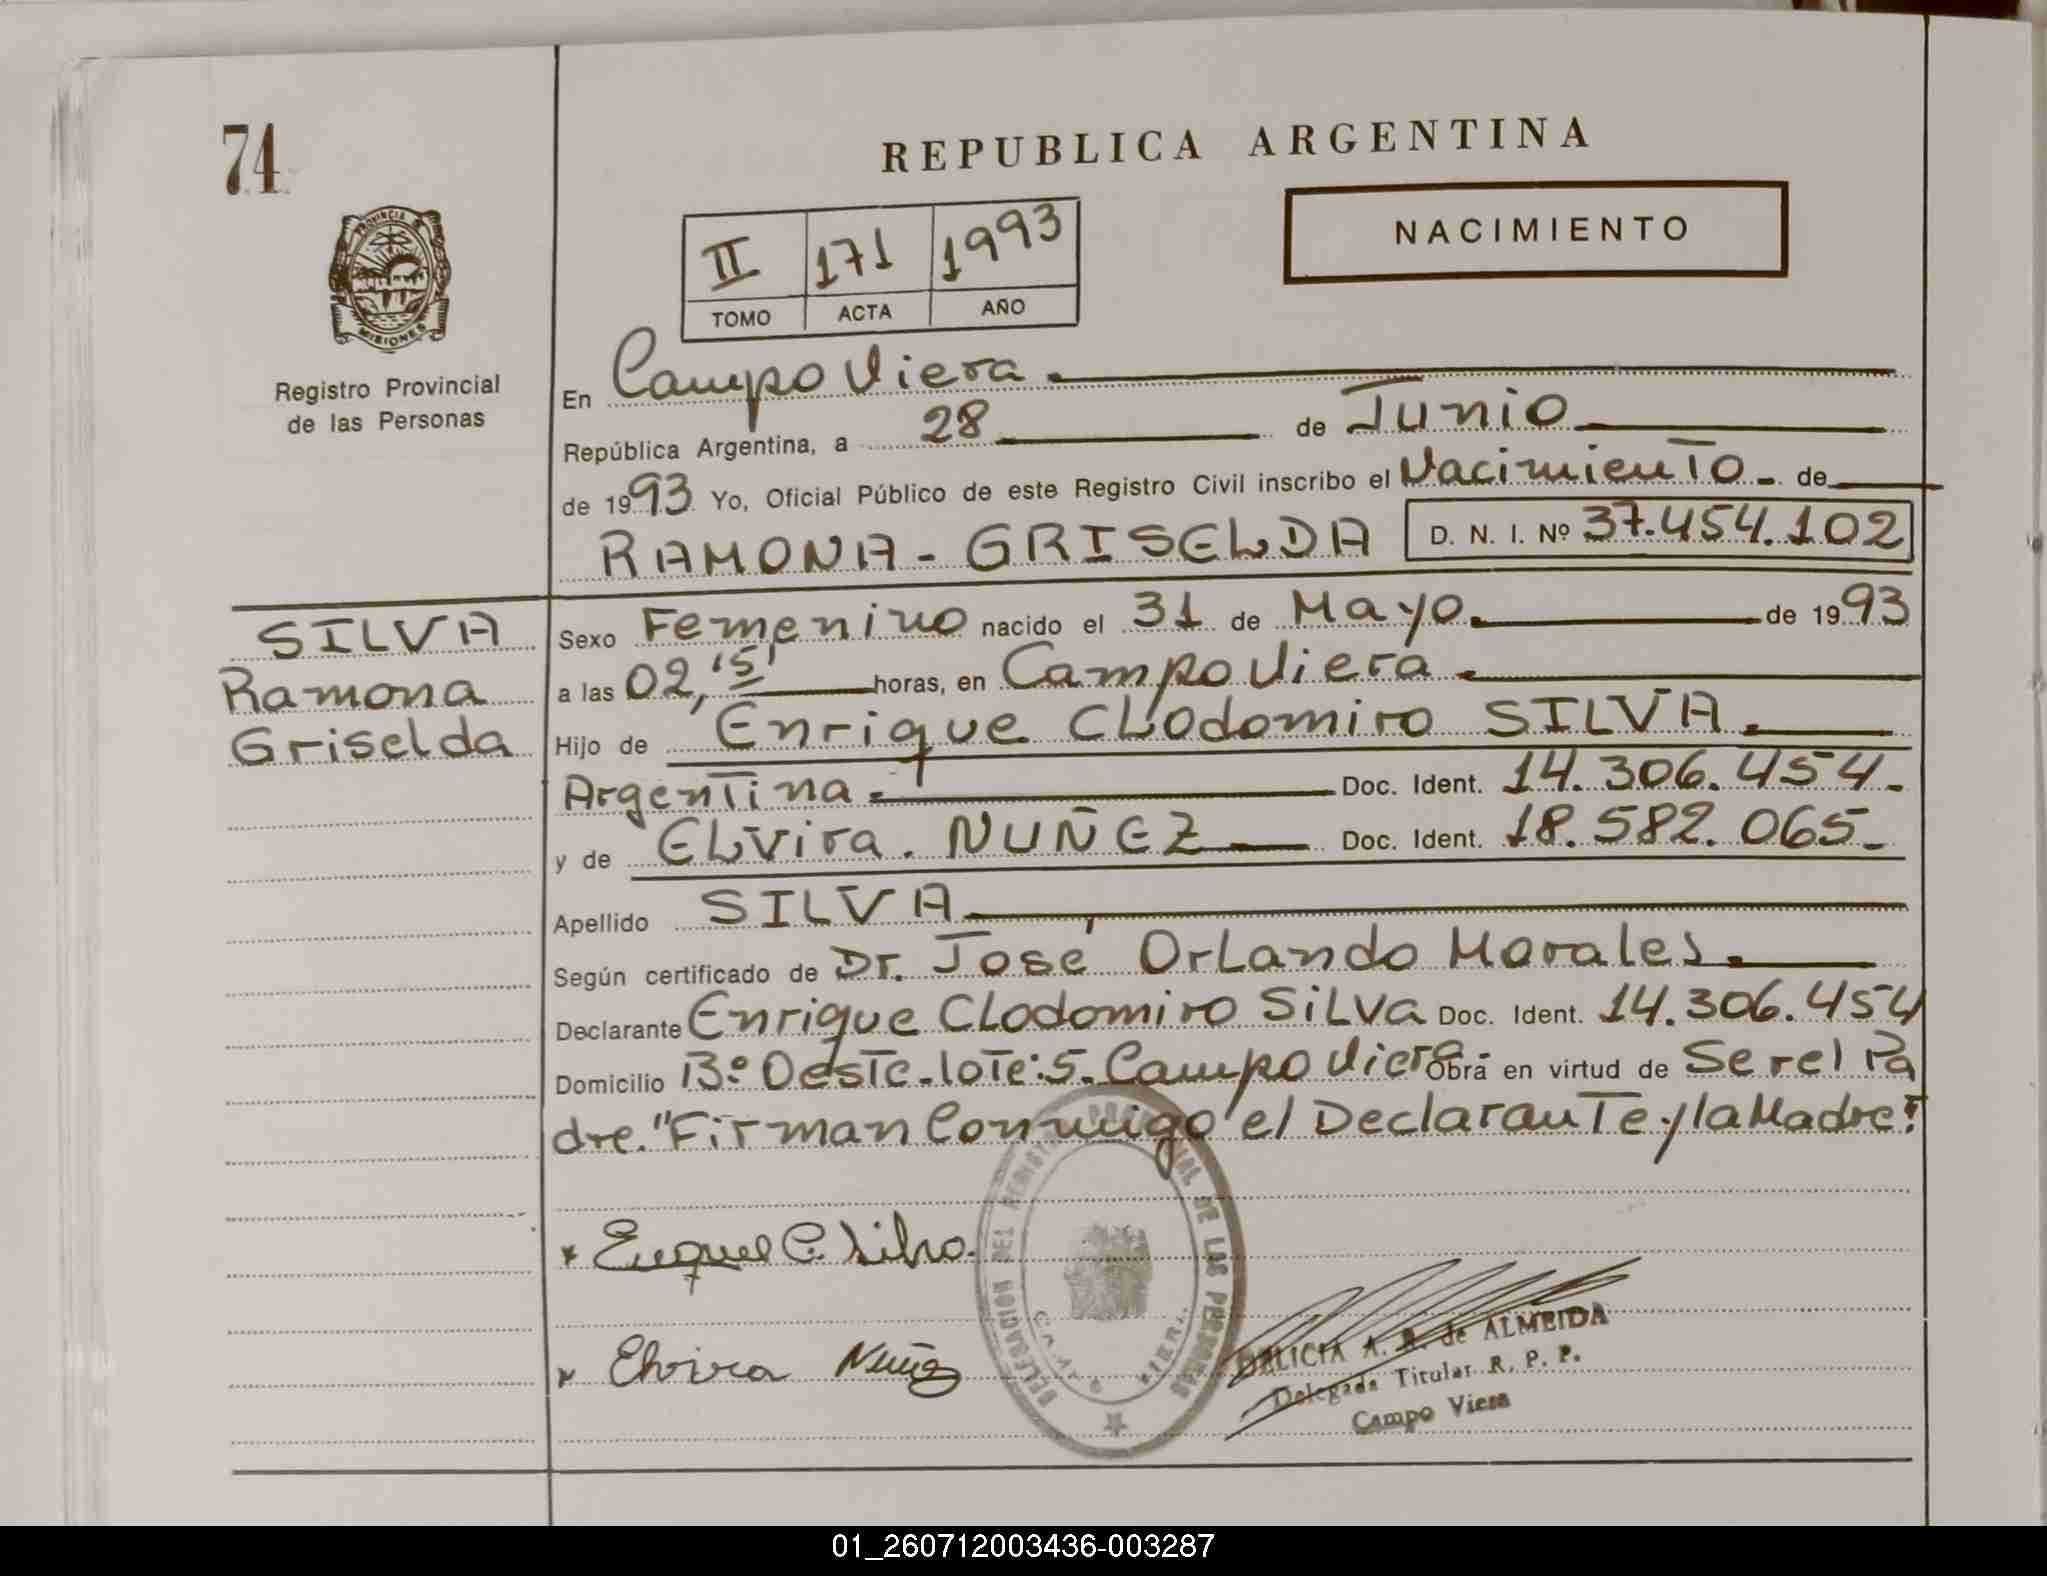 74
REPUBLICA ARGENTINA
NACIMIENTO
II 171 1993
TOMO ACTA AÑO
PROVINCIA DE
MISIONES
Registro Provincial
de las Personas
En Campo Viera
República Argentina, a 28 de Junio
de 1993 Yo, Oficial Público de este Registro Civil inscribo el Nacimiento - de
RAMONA - GRISELDA D. N. I. Nº 37.454.102
SILVA
Ramona
Griselda
Sexo Femenino nacido el 31 de Mayo de 1993
a las 02,15' horas, en Campo Viera
Hijo de Enrique Clodomiro SILVA
Argentina Doc. Ident. 14.306.454-
y de Elvira. NUÑEZ Doc. Ident. 18.582.065-
Apellido SILVA
Según certificado de Dr. José Orlando Morales
Declarante Enrique Clodomiro Silva Doc. Ident. 14.306.454
Domicilio Bº Oeste-lote:5. Campo Viera Obra en virtud de Ser el Pa
dre. "Firman Conmigo el Declarante y la Madre."
x Enrique C. Silva.
x Elvira Nuñez
DELEGACION DEL REGISTRO PROVINCIAL DE LAS PERSONAS
CAMPO VIERA
DELICIA A. R. de ALMEIDA
Delegada Titular R. P. P.
Campo Viera
01_260712003436-003287